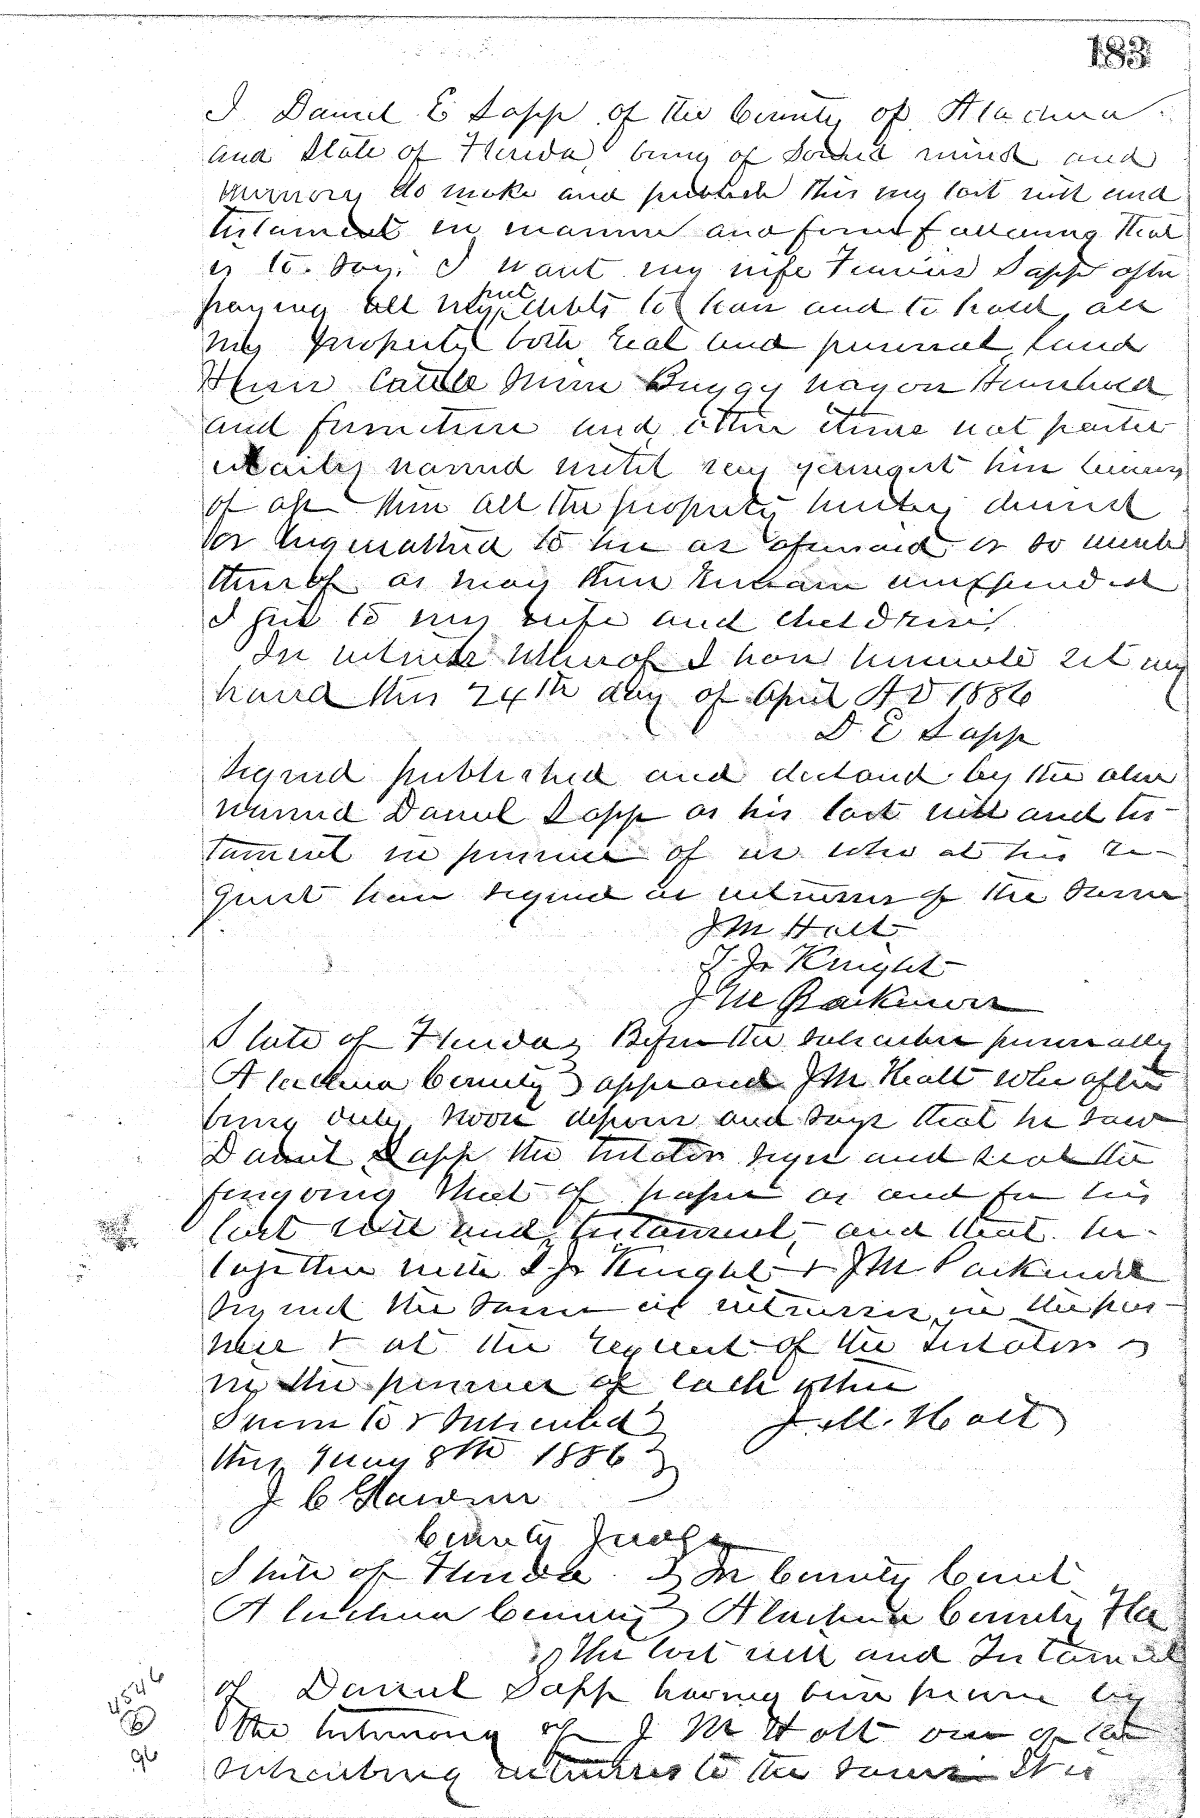 183
I Daniel E Sapp of the County of Alachua
and State of Florida, being of sound mind and
memory do make and publish this my last will and
testament in manner and form following that
is to say: I want my wife Sapp after
paying all my just debts to have and to hold all
my property both real and personal land
Horses Cattle Buggy wagon Household
and furniture and other items not partic
ularly named until my youngest heir becomes
of age then all the property hereby devised
or bequeathed to her as aforesaid or so much
thereof as may then remain unexpended
I give to my wife and children.
In witness Whereof I have hereunto set my
hand this 24th day of April AD 1886
D. E. Sapp
Signed published and declared by the above
named Daniel Sapp as his last will and tes-
tament in presence of us who at his re-
quest have signed as witnesses of the same
JM Holt
Knight
JM Parkinson
State of Florida } Before the subscriber personally
Alachua County } appeared JM Holt who after
being duly sworn deposes and says that he saw
Daniel Sapp the testator sign and seal the
foregoing sheet of paper as and for his
last will and testament, and that he
together with Knight & JM Parkinson
signed the same as witnesses in the pres-
ence & at the request of the testator &
in the presence of each other
Sworn to & subscribed } J. M. Holt
this May 8th 1886 }
J C Gardner
County Judge
State of Florida } In County Court
Alachua County } Alachua County Fla
The last will and Testament
of Daniel Sapp having been proven by
the testimony of J M Holt one of the
subscribing witnesses to the same It is
4546
B
96